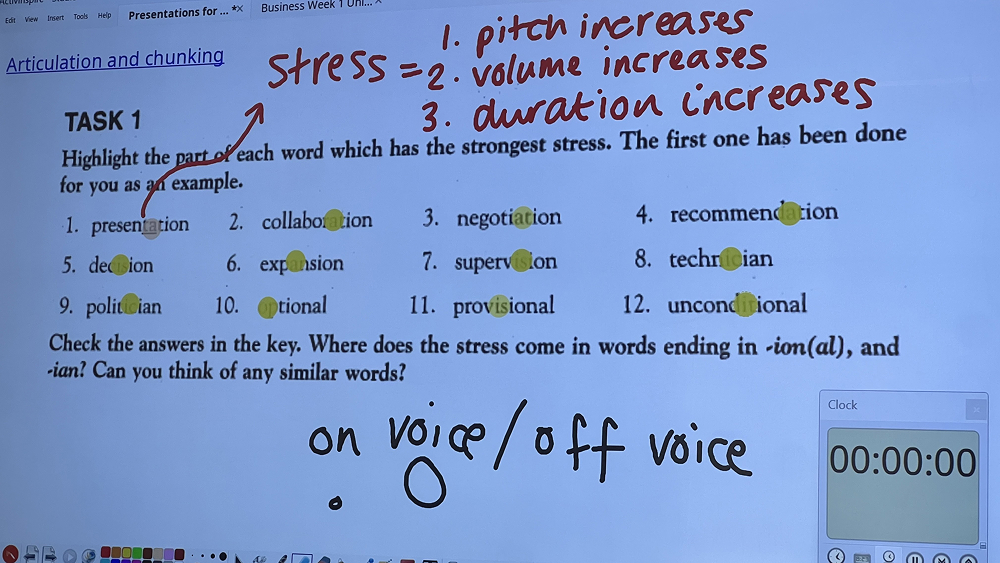 Edit View Insert Tools Help Presentations for ... *× Business Week 1 Uni...
Articulation and chunking
stress = 1. pitch increases
2. volume increases
3. duration increases
TASK 1
Highlight the part of each word which has the strongest stress. The first one has been done
for you as an example.
1. presentation 2. collaboration 3. negotiation 4. recommendation
5. decision 6. expansion 7. supervision 8. technician
9. politician 10. optional 11. provisional 12. unconditional
Check the answers in the key. Where does the stress come in words ending in -ion(al), and
-ian? Can you think of any similar words?
on voice / off voice
Clock
00:00:00